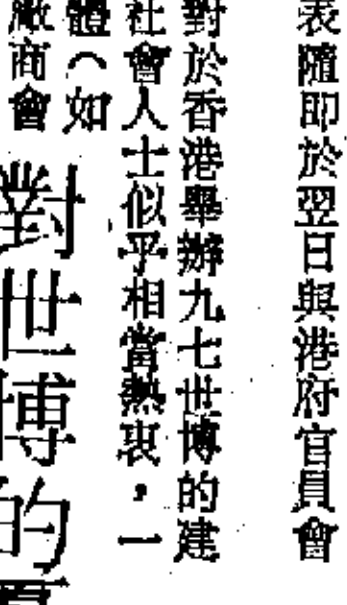 表隨即於翌日與港府官員會
對於香港舉辦九七世博的建
社會人士似乎相當熱衷，一
體（如
廠商會
對世博的